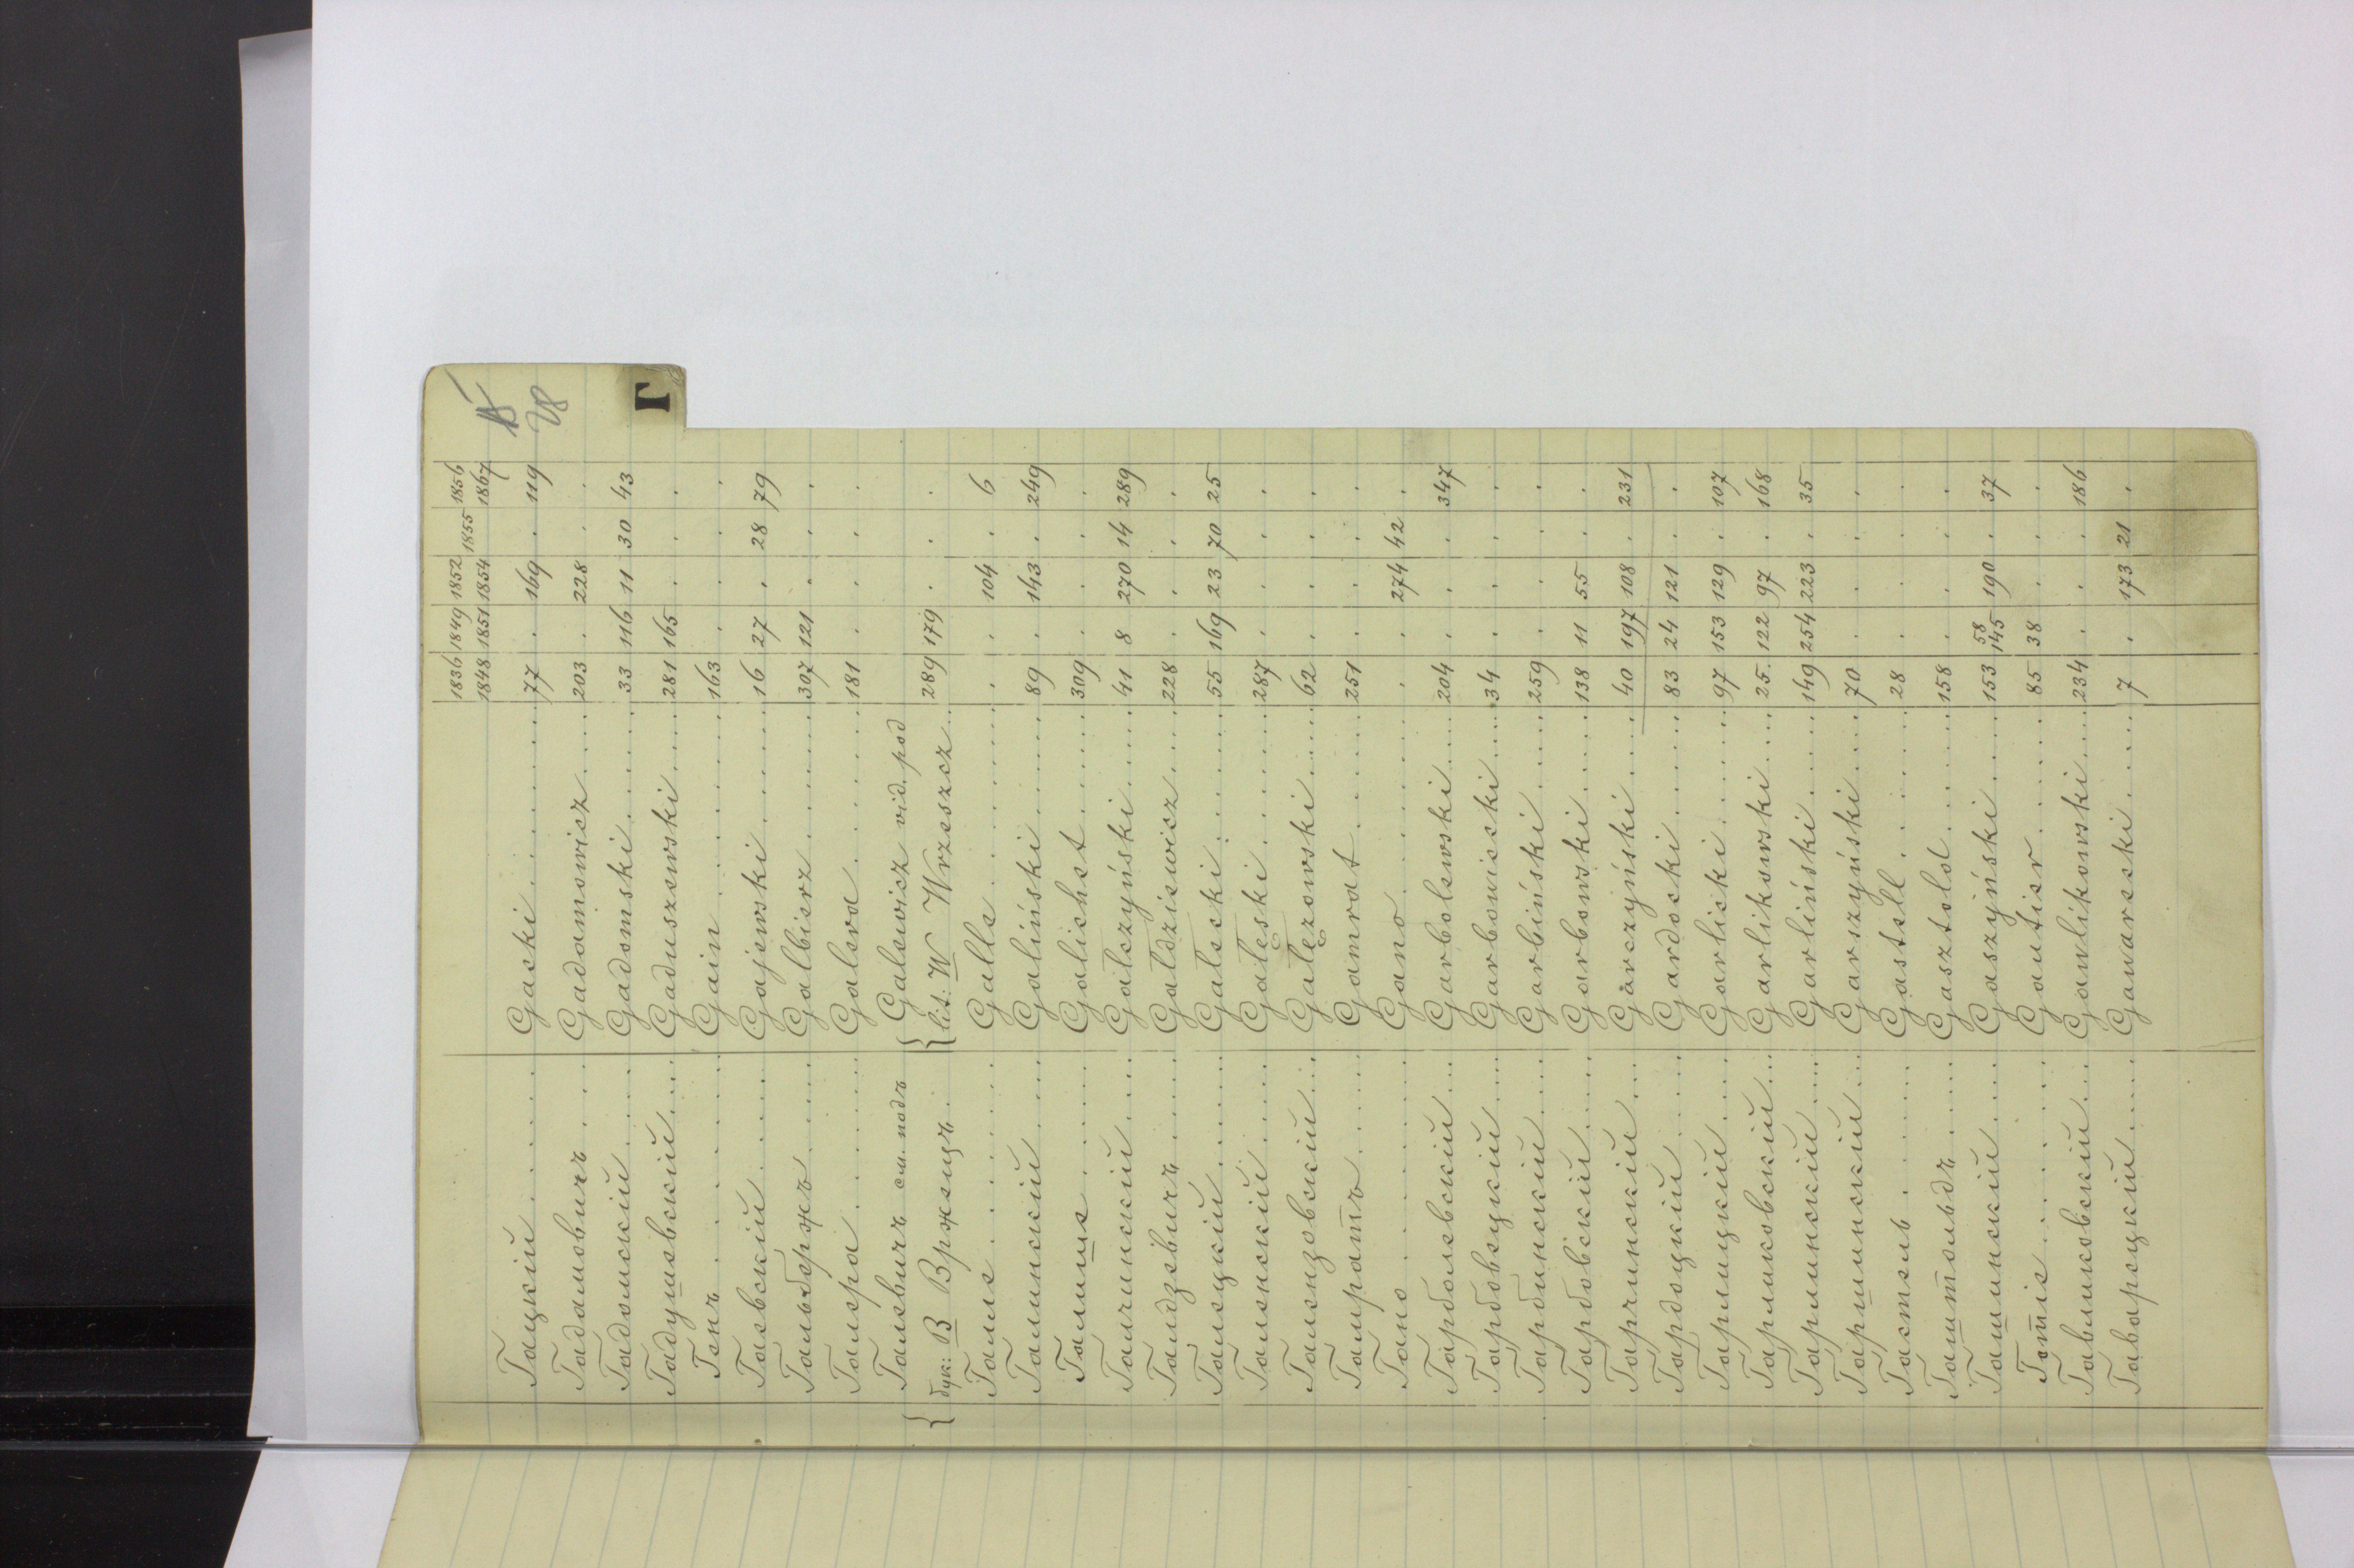 15
28
Г
1836 1849 1852 1855 1856
1848 1851 1854 1867
Гацкій Gacki 77 . 169 . 119
Гадамовичъ Gadamowicz 203 . 228 . .
Гадомскій Gadomski 33 116 11 30 43
Гадушевскій Gaduszewski 281 165 . . .
Генъ Gain 163 . . . .
Гаевскій Gajewski 16 27 . 28 79
Гальбержъ Galbierz 307 121 . . .
Галера Galera 181 . . . .
Галевичъ см. подъ Galewicz vid. pod
бук: В Вржещъ lit: W Wrzeszcz 289 179 . . .
Галле Galle . . 104 . 6
Галинскій Galiński 89 . 143 . 249
Галише Galichet 309 . . . .
Галчинскій Gałczyński 41 8 270 14 289
Галдзевичъ Gałdziewicz 228 . . . .
Галецкій Gałecki 55 169 23 70 25
Галенскій Gałęski 287 . . . .
Галензовскій Gałęzowski 62 . . . .
Гамратъ Gamrat 251 . . . .
Гано Gano . . 274 42 .
Гарболевскій Garbolewski 204 . . . 347
Гарбовецкій Garbowiecki 34 . . . .
Гарбинскій Garbiński 259 . . . .
Гарбовскій Garbowski 138 11 55 . .
Гарчинскій Garczyński 40 197 108 . 231
Гардоцкій Gardocki 83 24 121 . .
Гарлицкій Garlicki 97 153 129 . 107
Гарликовскій Garlikowski 25 122 97 . 168
Гарлинскій Garliński 149 254 223 . 35
Гаршинскій Garszyński 70 . . . .
Гастель Gastell 28 . . . .
Гаштольдъ Gasztold 158 . . . .
Гашинскій Gaszyński 153 58 145 190 . 37
Готіе Gautier 85 38 . . .
Гавликовскій Gawlikowski 234 . . . 186
Гаварецкій Gawarecki 7 . 173 21 .